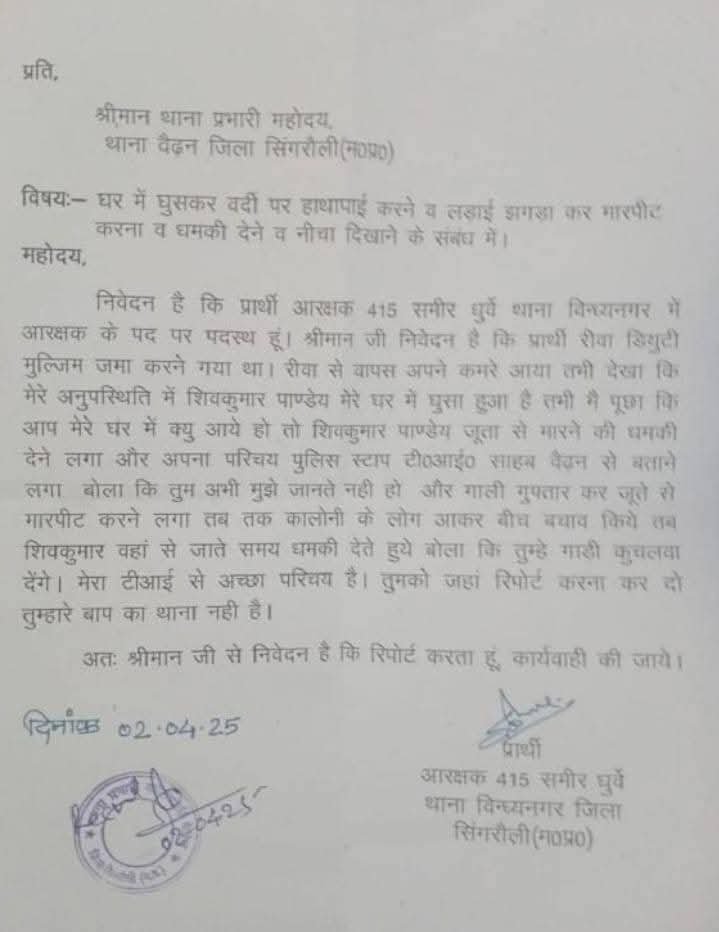 प्रति,
श्रीमान थाना प्रभारी महोदय,
थाना वैढ़न जिला सिंगरौली(म0प्र0)
विषयः– घर में घुसकर वर्दी पर हाथापाई करने व लड़ाई झगड़ा कर मारपीट
करना व धमकी देने व नीचा दिखाने के संबंध में।
महोदय,
निवेदन है कि प्रार्थी आरक्षक 415 समीर धुर्वे थाना विन्ध्यनगर में
आरक्षक के पद पर पदस्थ हूं। श्रीमान जी निवेदन है कि प्रार्थी रीवा डियुटी
मुल्जिम जमा करने गया था। रीवा से वापस अपने कमरे आया तभी देखा कि
मेरे अनुपस्थिति में शिवकुमार पाण्डेय मेरे घर में घुसा हुआ है तभी मै पूछा कि
आप मेरे घर में क्यु आये हो तो शिवकुमार पाण्डेय जूता से मारने की धमकी
देने लगा और अपना परिचय पुलिस स्टाप टी0आई0 साहब वैढ़न से बताने
लगा बोला कि तुम अभी मुझे जानते नही हो और गाली गुफ्तार कर जूते से
मारपीट करने लगा तब तक कालोनी के लोग आकर बीच बचाव किये तब
शिवकुमार वहां से जाते समय धमकी देते हुये बोला कि तुम्हे गाडी कुचलवा
देंगे। मेरा टीआई से अच्छा परिचय है। तुमको जहां रिपोर्ट करना कर दो
तुम्हारे बाप का थाना नही है।
अतः श्रीमान जी से निवेदन है कि रिपोर्ट करता हूं, कार्यवाही की जाये।
दिनांक 02.04.25
प्रार्थी
आरक्षक 415 समीर धुर्वे
थाना विन्ध्यनगर जिला
सिंगरौली(म0प्र0)
020425